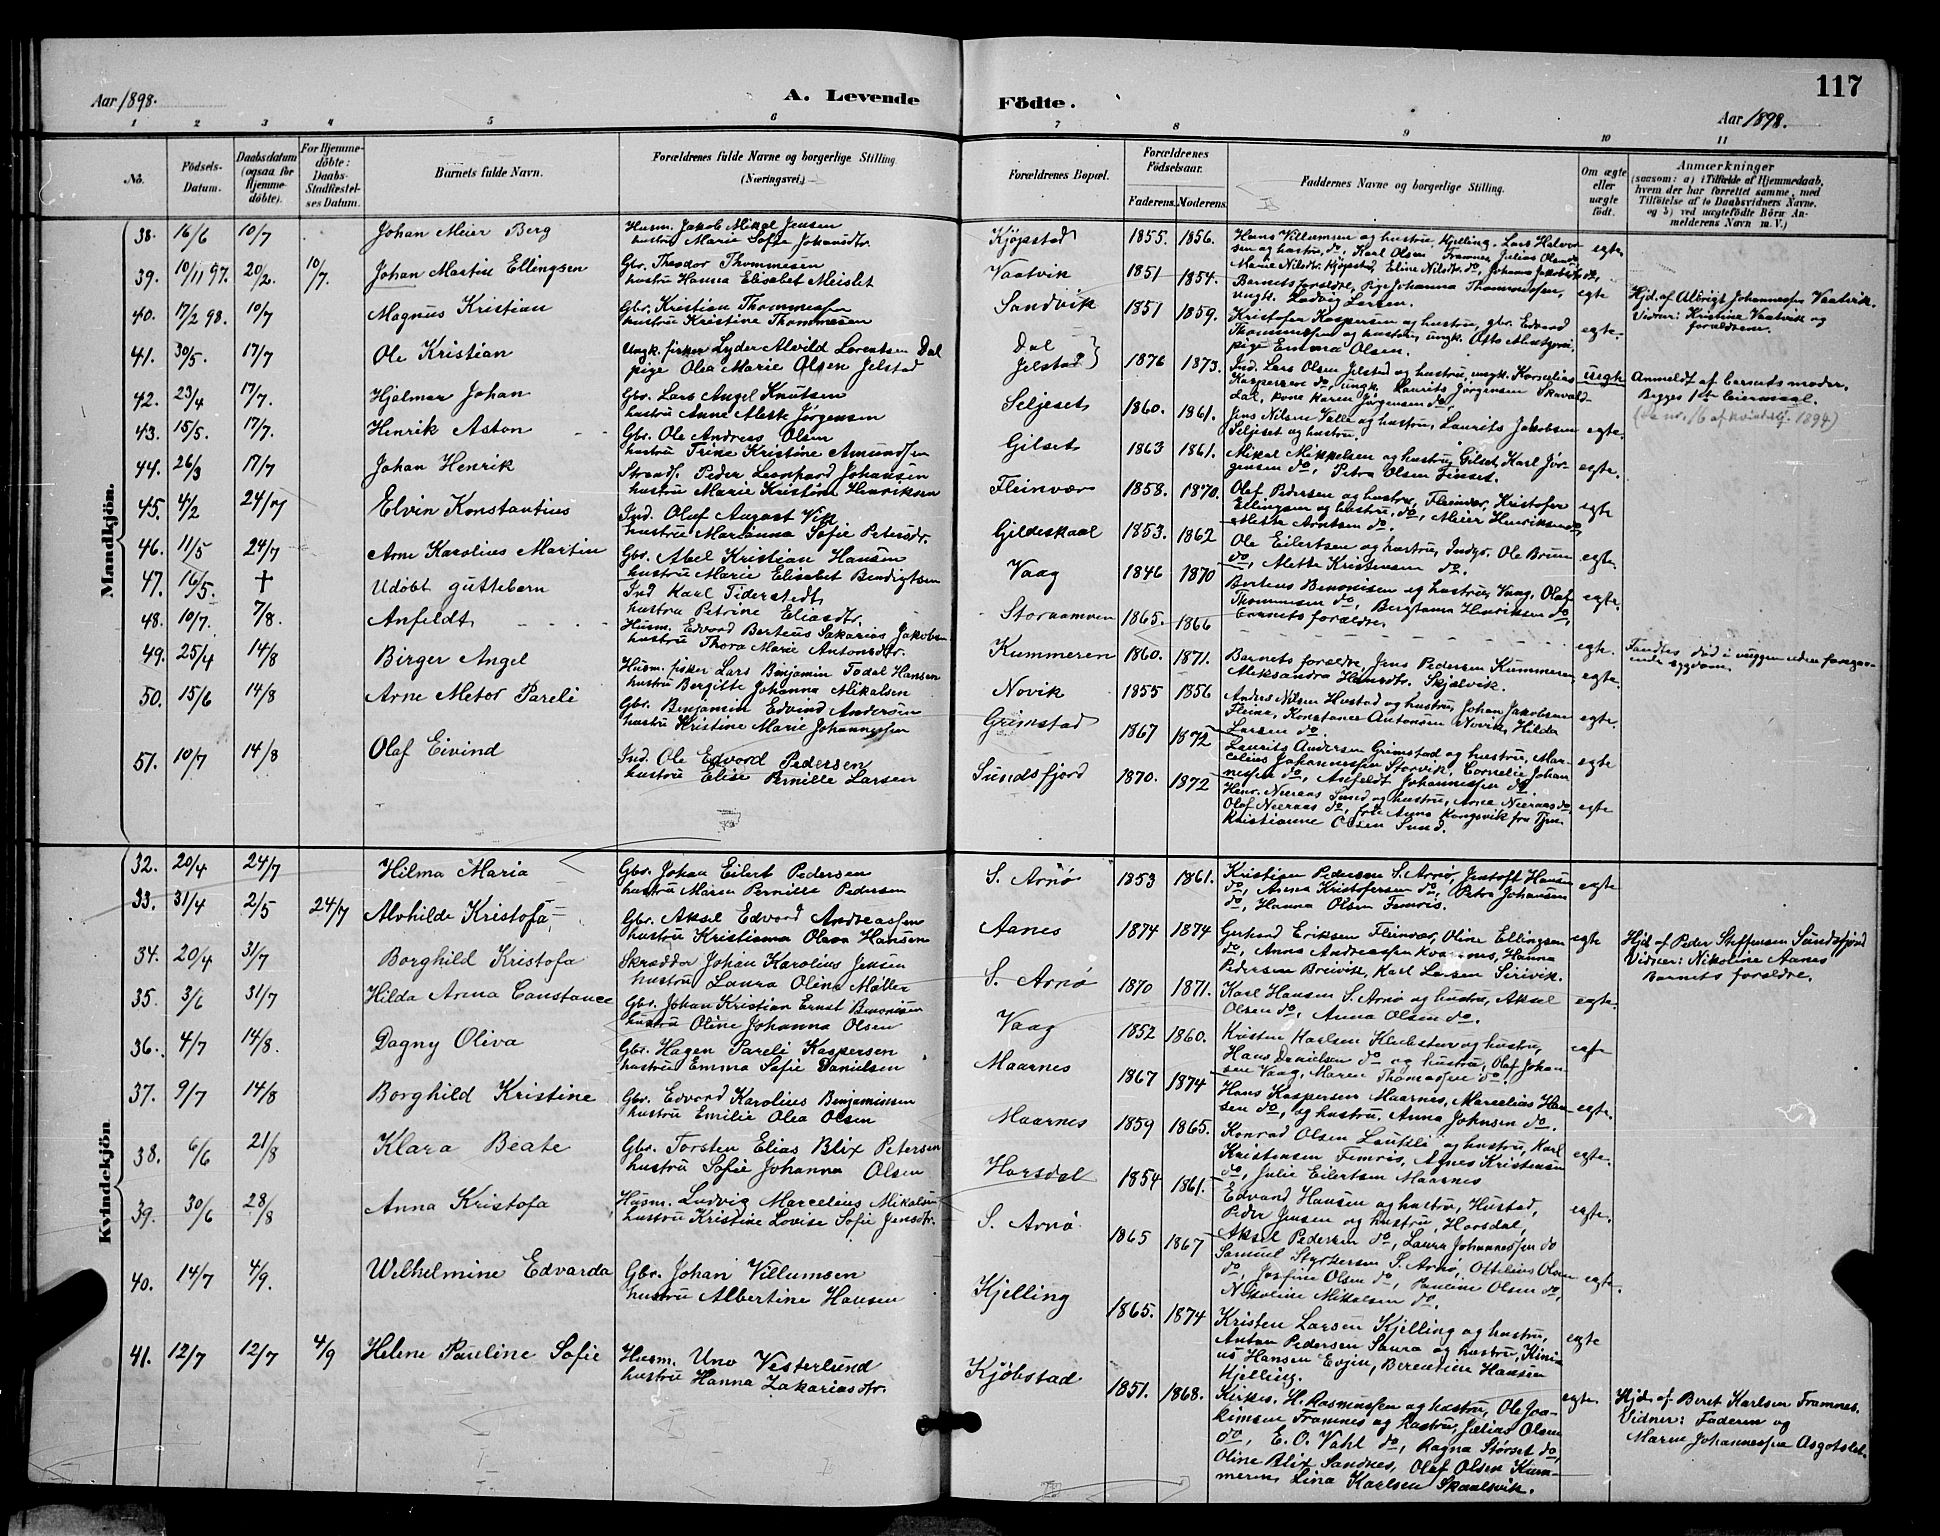 Aar 1898.
A. Levende
Födte.
117
Aar 1898.
1 2 3 4 5 6 7 8 9 10 11
No.
Födsels-Datum.
Daabsdatum (ogsaa for Hjemmedöbte).
For Hjemmedöbte: Daabs-Stadfæstelses Datum.
Barnets fulde Navn.
Forældrenes fulde Navne og borgerlige Stilling (Næringsvei.)
Forældrenes Bopæl.
Forældrenes Födselsaar.
Faderens. Moderens.
Faddernes Navne og borgerlige Stilling.
Om ægte eller uægte födt.
Anmærkninger
(saasom: a) i Tilfælde af Hjemmedaab, hvem der har forrettet samme, med Tilföielse af to Daabsvidners Navne, og b) ved uægtefödte Börn Anmelderens Navn m. V.)
Mandkjön.
38. 16/6 10/7 Johan Meier Berg
Husm. Jakob Mikal Jensen
hustru Marie Sofie Johansdtr.
Kjøpstad 1855. 1856.
Hans Villumsen og hustru, Kjelling, Lars Halvorsen og hustru, do, Karl Olsen Framnes, Julius Olsen do, Marie Nilsdtr. Kjøpstad, Eline Nilsdtr. do, Johanna Jakobsdtr. do,
egte.
39. 10/11 97. 20/2. 10/7. Johan Martin Ellingsen
Gbr. Theodor Thommesen
hustru Hanna Elisabet Meislet
Vaatvik 1851 1854.
Barnets forældre, pige Johanna Thommessen, ungk. Ludvig Larsen.
egte
Hjd. af Albrigt Johannessen Vaatvik.
Vidner: Kristine Vaatvik og forældrene.
40. 17/2 98. 10/7 Magnus Kristian
Gbr. Kristian Thommessen
hustru Kristine Thommesen
Sandvik 1851 1859.
Kristofer Kaspersen og hustru, gbr. Edvard Thommessen og hustru, ungk. Otto pige Emma Olsen.
egte.
41. 30/5. 17/7 Ole Kristian
Ungk. fisker Lyder Alvild Lorentsen Dal
pige Olea Marie Olsen Jelstad
Dal Jelstad } 1876 1873.
Ind. Lars Olsen Jelstad og hustru, ungk. Kornelius Kaspersen do, ungk. Laurits Jørgensen Skavaldal, kone Karen Jørgensen do.
uegte
Anmeldt af barnets moder.
Begges 1ste leiermaal.
(Se nr. 16 af kvindekj. 1894)
42. 23/4 17/7. Hjalmar Johan
Gbr. Lars Angel Knutsen
hustru Anne Mette Jørgensen
Seljeset 1860. 1861.
Jens Nilsen Valle og hustru, Laurits Jakobsen Seljeset og hustru.
egte.
43. 15/5. 17/7. Henrik Aston
Gbr. Ole Andreas Olsen
hustru Trine Kristine Amundsen
Gilset 1863 1861.
Mikal Mikkelsen og hustru, Gilset, Karl Jørgensen do, Petra Olsen Finset.
egte.
44. 26/3 17/7 Johan Henrik
Strands. Peder Leonhard Johansen
hustru Marie Kristine Henriksen
Fleinvær 1858. 1870.
Olaf Pedersen og hustru, Fleinvær, Kristofer Ellingsen og hustru, do, Meier Henriksen do, Mette Arntsen do.
egte
45. 4/2 24/7 Elvin Konstantius
Ind. Oluf August Vik
hustru Marianna Sofie Petersdtr.
Gildeskaal 1853. 1862
Ole Eilertsen og hustru, Indyr, Ole Bruun do, Mette Kristensen do.
egte.
46. 11/5 24/7 Arne Karolius Martin
Gbr. Abel Kristian Hansen
hustru Marie Elisabet Bendigtsen
Vaag 1846 1870
Berteus Benonisen og hustru, Vaag, Olaf Thommesen do, Bergtama Henriksen do, Barnets forældre.
egte.
47. 16/5. † Udöbt guttebarn
Ind Karl Tiderstedt
hustru Petrine Eliasdtr.
Storaamoen 1865. 1866
egte.
Fandtes död i vuggen uden foregaaende sygdom.
48. 10/7. 7/8. Anfeldt
Husm. Edvard Berteus Sakarias Jakobsen
hustru Thora Marie Antonsdtr.
Kummeren 1860. 1871.
Barnets forældre, Jens Pedersen Kummeren, Aleksandra Hansdtr. Skjælvik.
egte.
49. 25/4 14/8 Birger Angel
Husm. fisker Lars Benjamin Todal Hansen
hustru Bergitte Johanna Mikalsen
Novik 1855 1856
Anders Nilsen Hustad og hustru, Johan Jakobsen Fleine, Konstance Antonsen Novik, Hilda Larsen do.
egte.
50. 15/6 14/8 Arne Metor Pareli
Gbr. Benjamin Edvind Andersen
hustru Kristine Marie Johannessen
Grimstad 1867 1872
Laurits Andersen Grimstad og hustru, Marcelius Johannessen Storvik, Cornelie Johannessen do, Anfeldt Johannessen do.
egte
51. 10/7 14/8 Olaf Eivind
Ind. Ole Edvard Pedersen
hustru Elise Pernille Larsen
Sundsfjord 1870. 1872
Henr. Neeraas Sund og hustru, Arne Neeraas do, Olaf Neeraas do, frk. Anna Kongsvik fra Kristianne Olsen Sund.
egte
Kvindekjön
32. 20/4 24/7 Hilma Maria
Gbr. Johan Eilert Pedersen
hustru Maren Pernille Pedersen
S. Arnö 1853 1861.
Kristian Pedersen S. Arnö, Jentoft Hansen do, Anna Kristofersen do, Petra Johansen do, Hanna Olsen Femris.
egte
33. 31/4 2/5 24/7 Alvhilde Kristofa
Gbr. Aksel Edvard Andreassen
hustru Kristianna Olava Hansen
Aanes 1874 1874
Gerhard Eriksen Fleinvær, Oline Ellingsen do, Anna Andreassen Kvarsnes, Hanna Pedersen Breivik, Karl Larsen Sirivik.
egte
Hjd af Peder Steffensen Sundsfjord
Vidner: Nikoline Aanes
Barnets forældre.
34. 20/4 31/7 Borghild Kristofa
Skrædder Johan Karolius Jensen
hustru Laura Oline Møller
S. Arnö 1870 1871.
Karl Hansen S. Arnö og hustru, Aksel Olsen do, Anna Olsen do.
egte.
35. 3/6 31/7 Hilda Anna Constance
Gbr. Johan Kristian Ernst Benonisen
hustru Oline Johanna Olsen
Vaag 1852 1860.
Kristen Karlsen og hustru, Hans Danielsen do og hustru, Olaf Johansen Vaag, Maren Thomassen do.
egte
36. 4/7 14/8. Dagny Oliva
Gbr. Hagen Pareli Kaspersen
hustru Emma Sofie Danielsen
Maarnes 1867 1874
Hans Kaspersen Maarnes, Marcelias Hansen do, og hustru, Anna Johnsen do.
egte.
37. 9/7 14/8 Borghild Kristine
Gbr. Edvard Karolius Benjaminsen
hustru Emilie Olea Olsen
Maarnes 1859 1865.
Konrad Olsen Lauteli og hustru, Karl Kristensen Femris, Agnes Kristensen do, Julie Eilertsen Maarnes
egte.
38. 6/6 21/8 Klara Beate
Gbr. Torsten Elias Blix Petersen
hustru Sofie Johanna Olsen
Horsdal 1854 1861.
Edvard Hansen og hustru, Hustad, Peder Jensen og hustru, Horsdal, Aksel Pedersen do, Laura Johannessen do
egte.
39. 30/6 28/8 Anna Kristofa
Husm. Ludvig Marcelius Mikalsen
hustru Kristine Lovise Sofie Jensdtr.
S. Arnö 1865 1867
Samuel Styrkersen S. Arnö, Ottelius Olsen do, Josfine Olsen do, Pauline Olsen do, Nikoline Mikalsen do.
egte.
40. 14/7 4/9. Wilhelmine Edvarda
Gbr. Johan Villumsen
hustru Albertine Hansen
Kjelling 1865. 1874
Kristen Larsen Kjelling og hustru, Anton Pedersen Saura og hustru, Hansen Evjen, Berentine Hansen Kjelling.
egte
41. 12/7 12/7 4/9 Helene Pauline Sofie
Husm. Uno Vesterlund
hustru Hanna Zakariasdtr.
Kjøbstad 1851. 1868.
Kirkes. H. Rasmussen og hustru, Ole Joakimsen Framnes og hustru, Julius Olsen do, E. O. Vahl do, Ragna Størset do, Oline Blix Sandnes, Olaf Olsen Kummeren, Lina Karlsen Skaalsvik.
egte.
Hjd. af Beret Karlsen Framnes.
Vidner: Faderen og
Maren Johannessen Asgotslet.